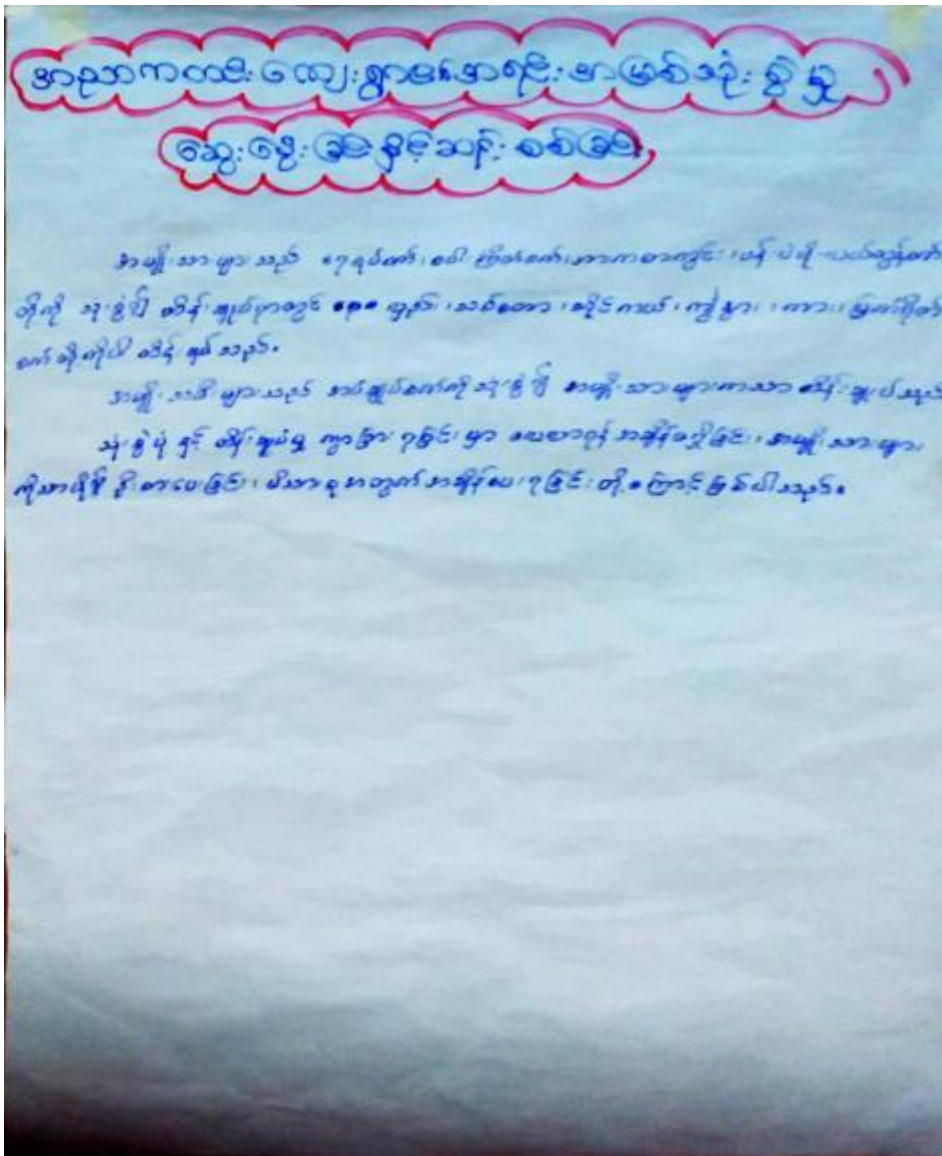 အညာကတင်းကျေးရွာ၏အရင်းအမြစ်သုံးစွဲမှု
ဆွေးနွေးခြင်းနှင့်ဆန်းစစ်ခြင်း
အမျိုးသားများသည် ရေစုပ်စက်၊ စပါးကြိတ်စက်၊ အားကစားကွင်း၊ ပန်းပဲဖို၊ လယ်ထွန်စက်
တို့ကို သုံးစွဲ၍ ထိန်းချုပ်ရာတွင် လှည်း၊ သစ်တော၊ ဆိုင်ကယ်၊ ကျွဲနွား၊ ကား၊ မြက်ရိတ်
စက်တို့ကိုပါ ထိန်းချုပ်သည်။
အမျိုးသမီးများသည် အပ်ချုပ်စက်ကိုသုံးစွဲ၍ အမျိုးသားများကသာ ထိန်းချုပ်သည်
သုံးစွဲပုံနှင့် ထိန်းချုပ်မှု ကွာခြားရခြင်းမှာ အချိန်မရှိခြင်း၊ အမျိုးသားများ
ကိုသာပို၍ ဦးစားပေးခြင်း၊ မိသားစုအတွက်အချိန်ပေးရခြင်းတို့ကြောင့်ဖြစ်ပါသည်။